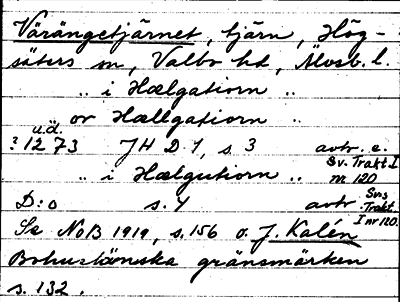 Värängetjärnet, tjärn, Hög-
säters sn, Valbo hd, Älvsb. l.
„ i Hælgatiorn „
or Hællgatiorn „
u.d.
? 1273 JH D 1, s. 3 avtr. e.
Sv. Trakt I
nr 120
„ i Hælgutiorn „
D:o s. 4 avtr. Svns
Trakt.
I nr 120.
Se NoB 1919, s. 156 o. J. Kalén
Bohuslänska gränsmärken
s. 132.